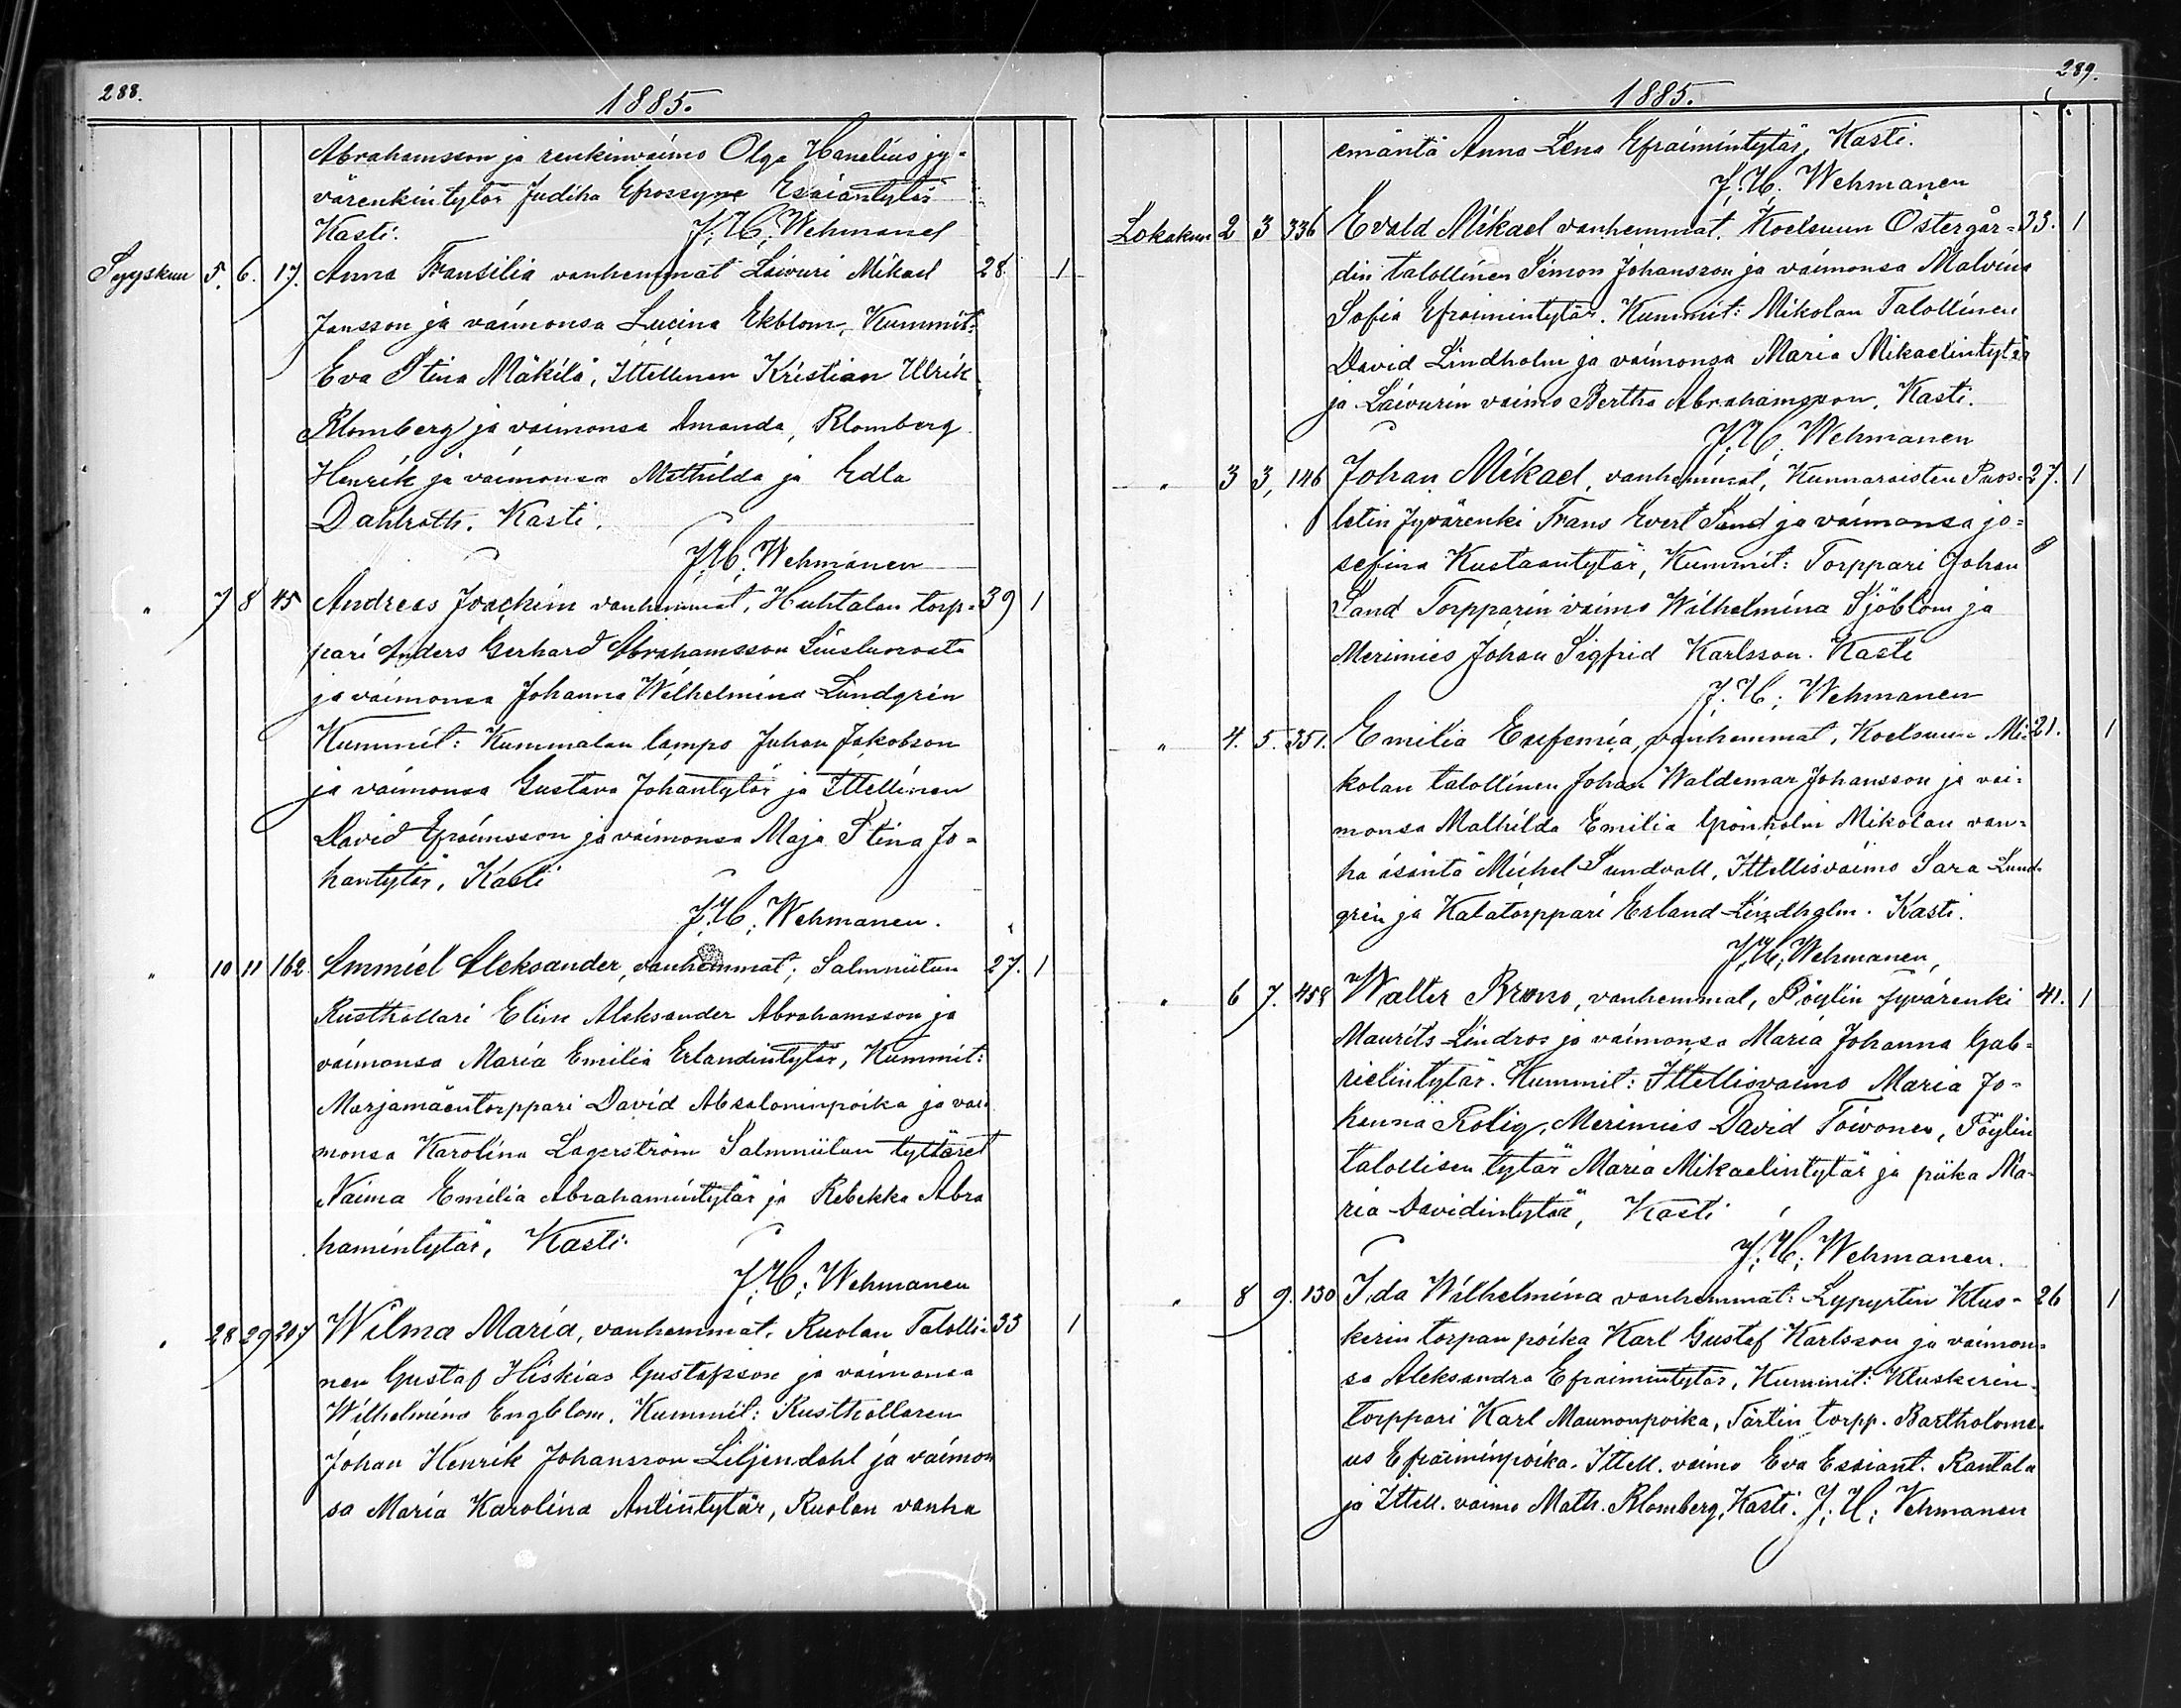 288.
1885.
Abrahamsson ja renkinvaimo Olga Hanelius jy-
värenkintytär Judika Efrossyne Esaiantytär
Kasti. J. H. Wehmanen
Syyskuu 5. 6. 17. Anna Fransilia vanhemmat Laivuri Mikael 28 1
Jansson ja vaimonsa Lucina Ekblom, Kummit:
Eva Stina Mäkilä, Ittellinen Kristian Ulrik
Blomberg ja vaimonsa Amanda, Blomberg
Henrik ja vaimonsa Mathilda ja Edla
Dahlroth. Kasti.
J. H. Wehmanen
" 7 8 45 Andreas Joachim vanhemmat, Huhtalan torp- 39 1
pari Anders Gerhard Abrahamsson
ja vaimonsa Johanna Wilhelmina Lundgrén
Kummit: Kummalan lampo Juhan Jakobson
ja vaimonsa Gustava Johantytär ja Ittellinen
David Efraimsson ja vaimonsa Maja Stina Jo-
hantytär, Kasti
J. H. Wehmanen.
" 10 11 162 Emmiel Aleksander, vanhemmat; Salmniitun 27. 1
Rusthollari Elim Aleksander Abrahamsson ja
vaimonsa Maria Emilia Erlandintytär, Kummit:
Marjamäentorppari David Absaloninpoika ja vai-
monsa Karolina Lagerström Salmniitun tyttäret
Naima Emilia Abrahamintytär ja Rebekka Abra
hamintytär, Kasti.
J. H. Wehmanen
" 28 29 207 Wilma Maria, vanhemmat, Ruolan Talolli- 33 1
nen Gustaf Hiskias Gustafsson ja vaimonsa
Wilhelmina Engblom. Kummit: Rusthollaren
Johan Henrik Johansson Liljendahl ja vaimon
sa Maria Karolina Antintytär, Ruolan vanha
289.
1885.
emäntä Anna Lena Efraimintytär, Kasti.
J. H. Wehmanen
Lokakuu 2 3 336 Evald Mikael vanhemmat. Koelsuun Östergår- 33. 1
din talollinen Simon Johansson ja vaimonsa Malvina
Sofia Efraimintytär. Kummit: Mikolan Talollinen
David Lindholm ja vaimonsa Maria Mikaelintytär
ja Laivurin vaimo Bertha Abrahamsson, Kasti.
J. H. Wehmanen
" 3 3, 146 Johan Mikael, vanhemmat, Kunnaraisten Puos- 27. 1
letin Jyvärenki Frans Evert Sand ja vaimonsa jo-
sefina Kustaantytär, Kummit: Torppari Johan
Sand Torpparin vaimo Wilhelmina Sjöblom ja
Merimies Johan Sigfrid Karlsson. Kasti
J. H. Wehmanen
" 4. 5. 351. Emilia Eufemia, vanhemmat, Koelsuun Mi- 21. 1
kolan talollinen Johan Waldemar Johansson ja vai-
monsa Mathilda Emilia Grönholm Mikolan van-
ha isäntä Michel Sundvall, Ittellisvaimo Sara Lund-
grén ja Kalatorppari Erland Lindholm. Kasti.
J. H. Wehmanen,
" 6 7. 458 Walter Bruno, vanhemmat, Pöylin Jyvärenki 41. 1
Maurits Lindros ja vaimonsa Maria Johanna Gab-
rielintytär. Kummit: Ittellisvaimo Maria Jo-
hanna Rolig, Merimies David Toivonen, Pöylin
talollisen tytär Maria Mikaelintytär ja piika Ma-
ria Davidintytär, Kasti
J. H. Wehmanen.
" 8 9. 130 Ida Wilhelmina vanhemmat: Lypyrtin Klus- 26 1
kerin torpan poika Karl Gustaf Karlsson ja vaimon-
sa Aleksandra Efraimintytär, Kummit: Kluskerin
torppari Karl Maunonpoika, Tärtin torpp. Bartholome-
us Efraiminpoika. Ittell. vaimo Eva Esaiant. Rantala
ja Ittell. vaimo Math. Blomberg, Kasti. J. H. Vehmanen